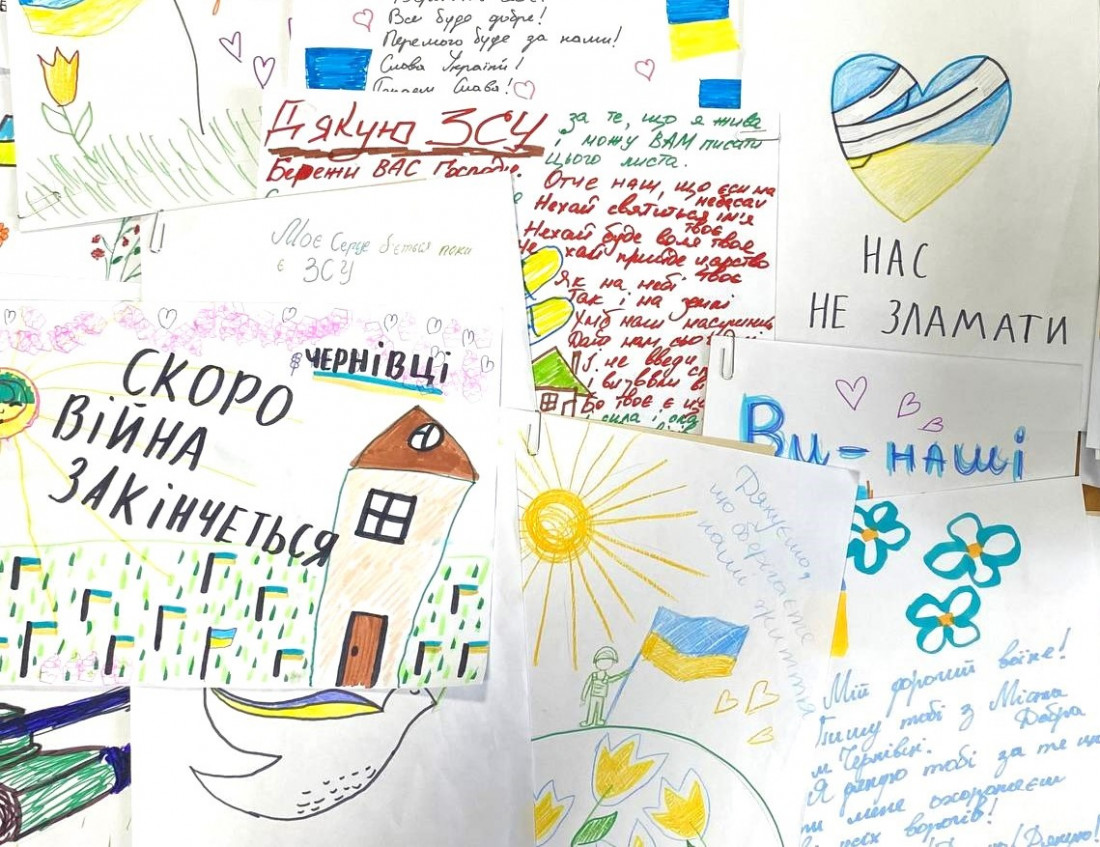 Все буде добре!
Перемога буде за нами!
Слава Україні!
Слава!
Дякую ЗСУ
Бережи ВАС Господь
за те, що я жива
і можу ВАМ писати
цього листа.
Отче наш, що єси на
небесах
Нехай святиться ім'я
твоє
Нехай буде воля твоя
хай прийде царство
твоє
Як на небі
Так і на землі
Хліб наш насущний
Дай нам, сьо
І не введи
Бо твоє є
і сила і
НАС
НЕ ЗЛАМАТИ
Моє серце б'ється поки
є ЗСУ
ЧЕРНІВЦІ
СКОРО
ВІЙНА
ЗАКІНЧЕТЬСЯ
Ви - наші
Дякуємо
що оберігаєте
наші життя
Мій дорогий воїне!
Пишу тобі з Міста
Добра
м Чернівці.
Я дякую тобі за те що
ти мене охороняєш
ворогів!
Дякую!